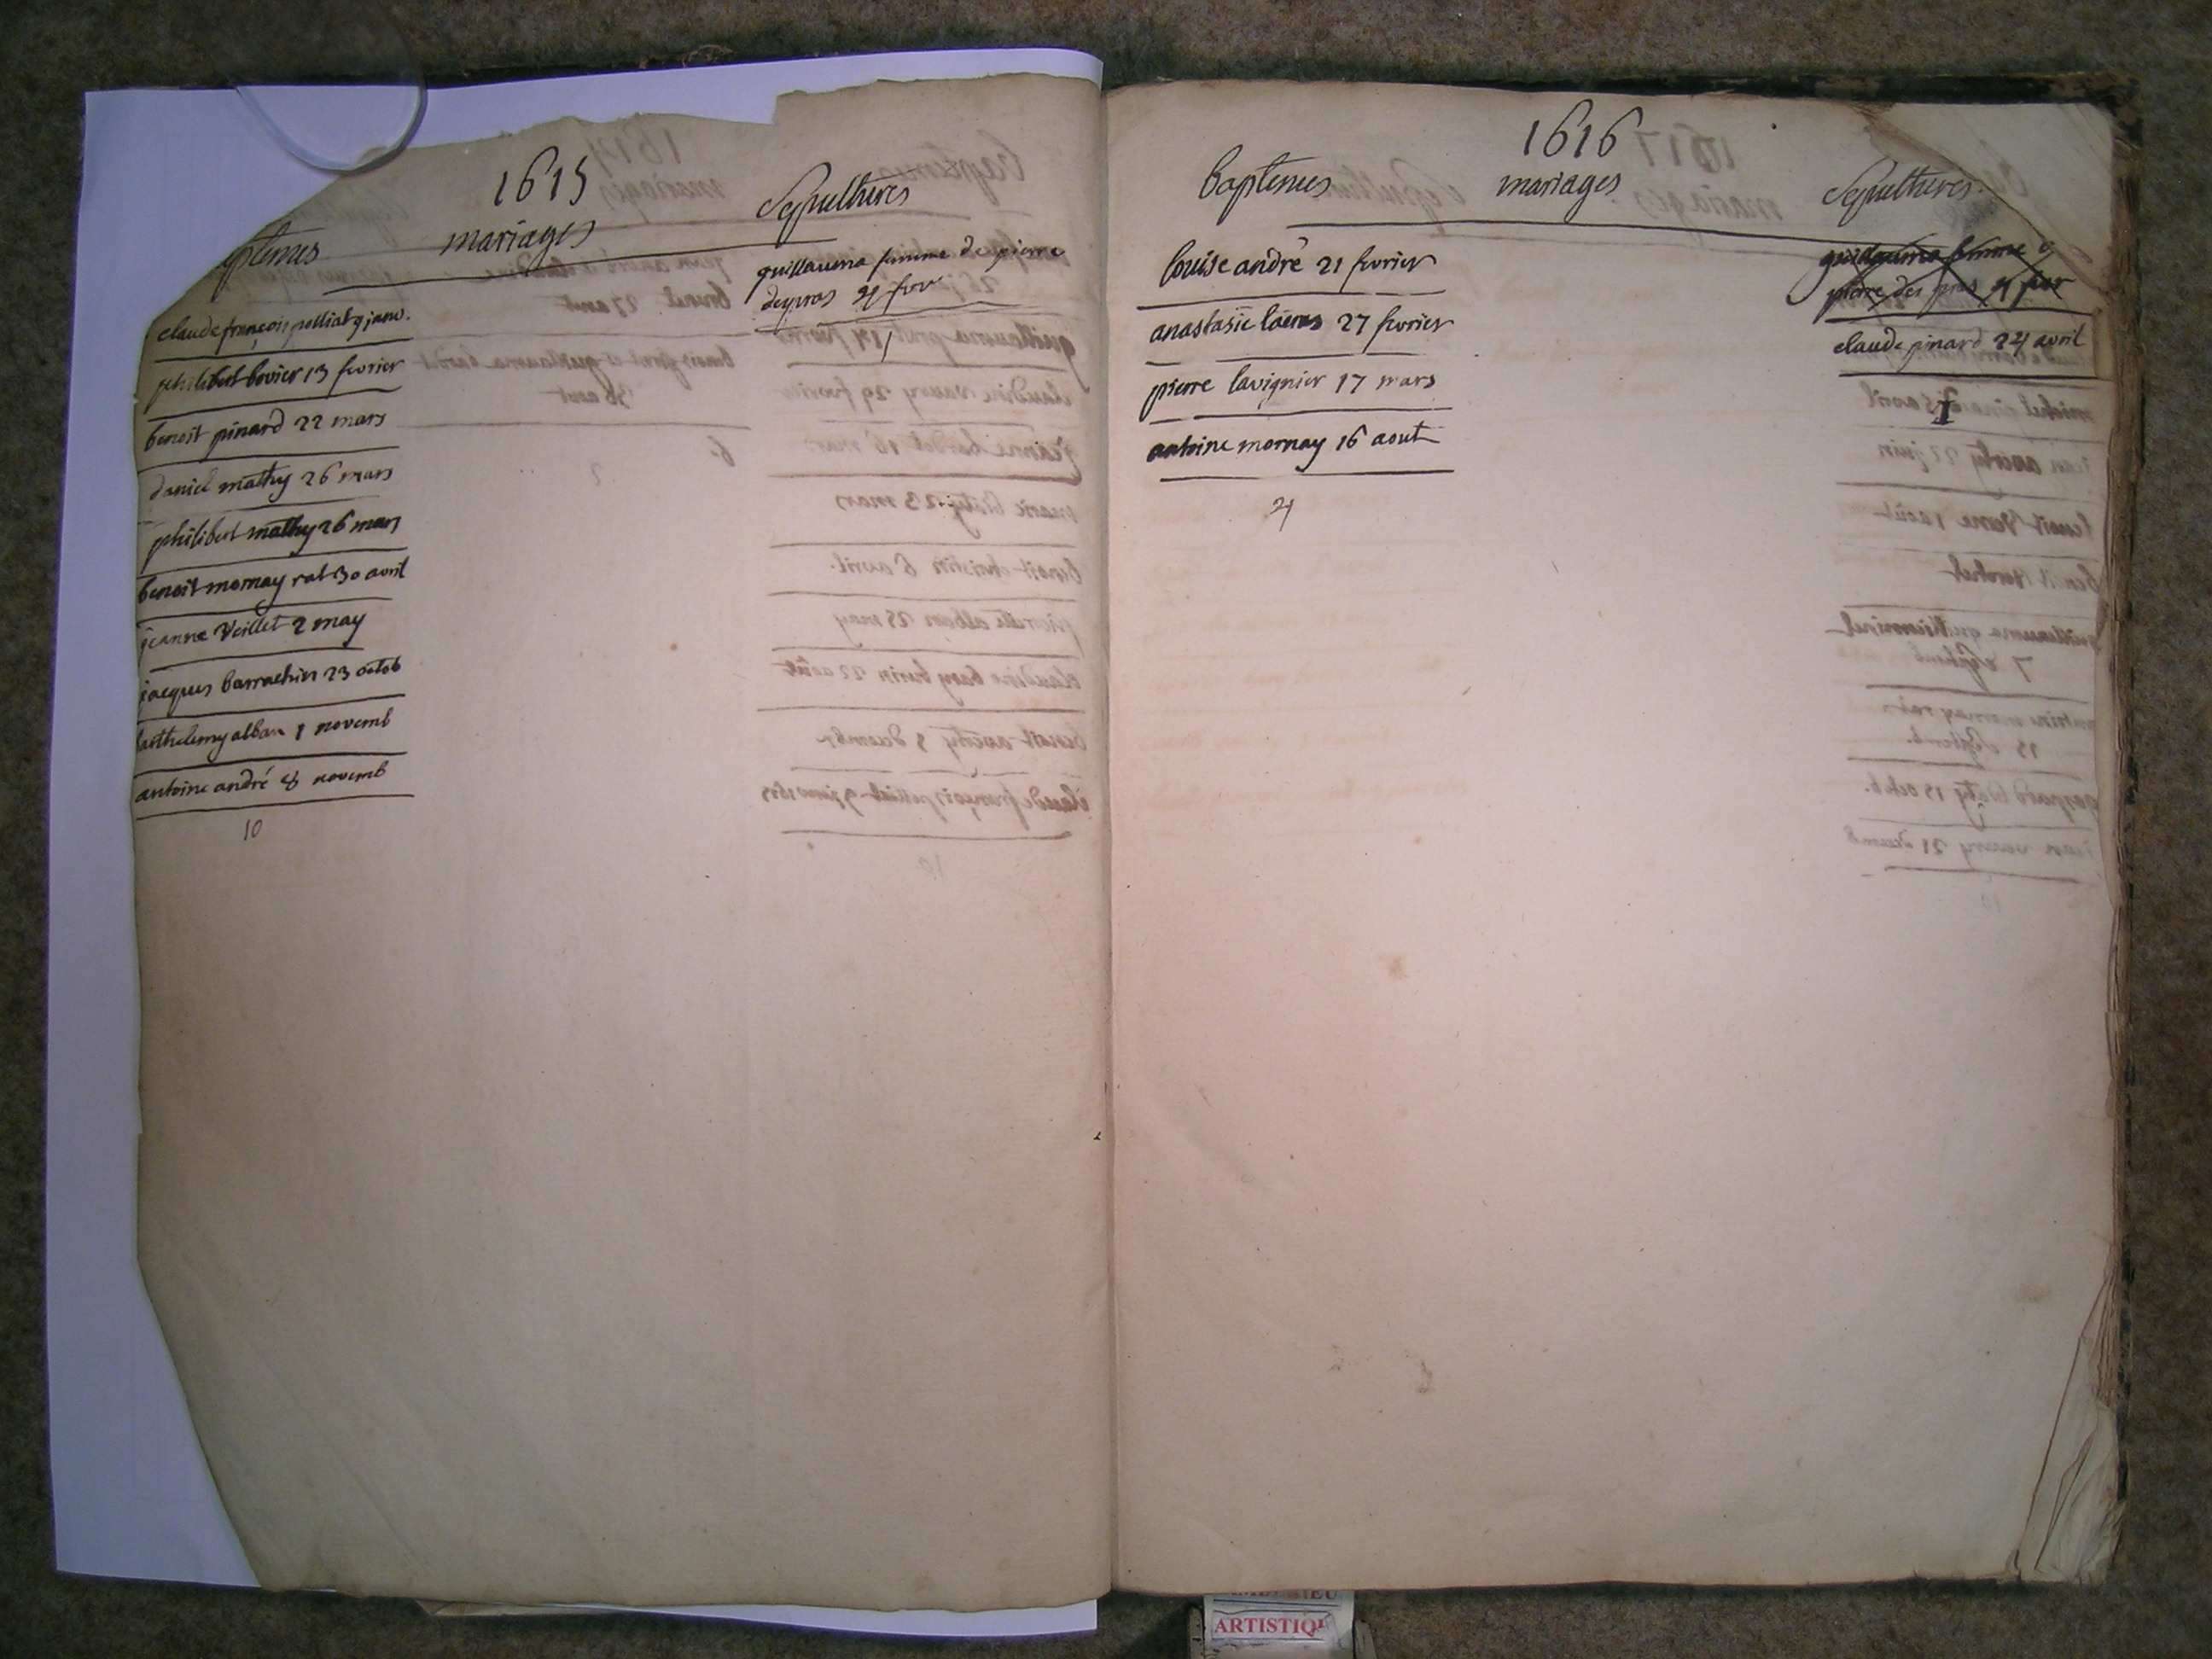 1615
ptemes
mariages
Sepultures
claude françois polliat 9 janv.
philibert bovier 13 fevrier
benoit pinard 22 mars
daniel mathy 26 mars
philibert mathy 26 mars
benoit mornay rat 30 avril
jeanne Veillet 2 may
jacques barrachin 23 octob
barthelemy alban 1 novemb
antoine andré 8 novemb
10
guillauma femme de pierre
depras 4 fevr
1
1616
baptemes
mariages
Sepultures
louise andré 21 fevrier
anastasie 27 fevrier
pierre lavignier 17 mars
antoine mornay 16 aout
4
guillauma femme
pierre des pras 4 fev
claude pinard 24 avril
1
ARTISTIQ